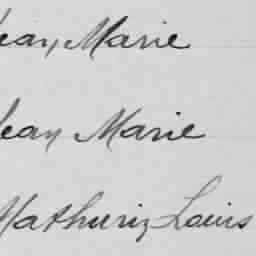 Jean Marie
Jean Marie
Mathurin Louis